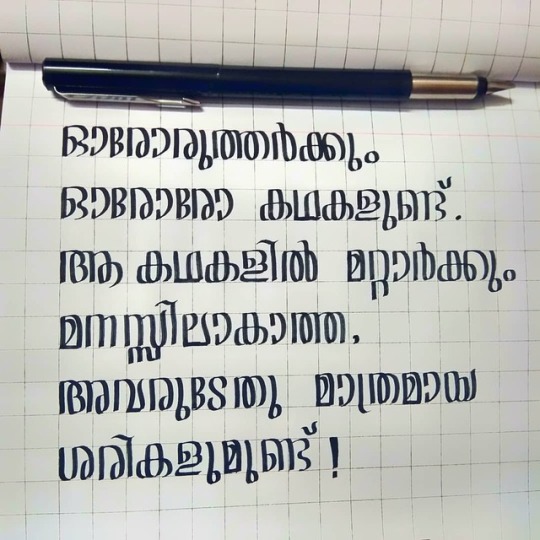 ഓരോരുത്തർക്കും
ഓരോരോ കഥകളുണ്ട്.
ആ കഥകളിൽ മറ്റാർക്കും
മനസ്സിലാകാത്ത,
അവരുടേതു മാത്രമായ
ശരികളുമുണ്ട്!